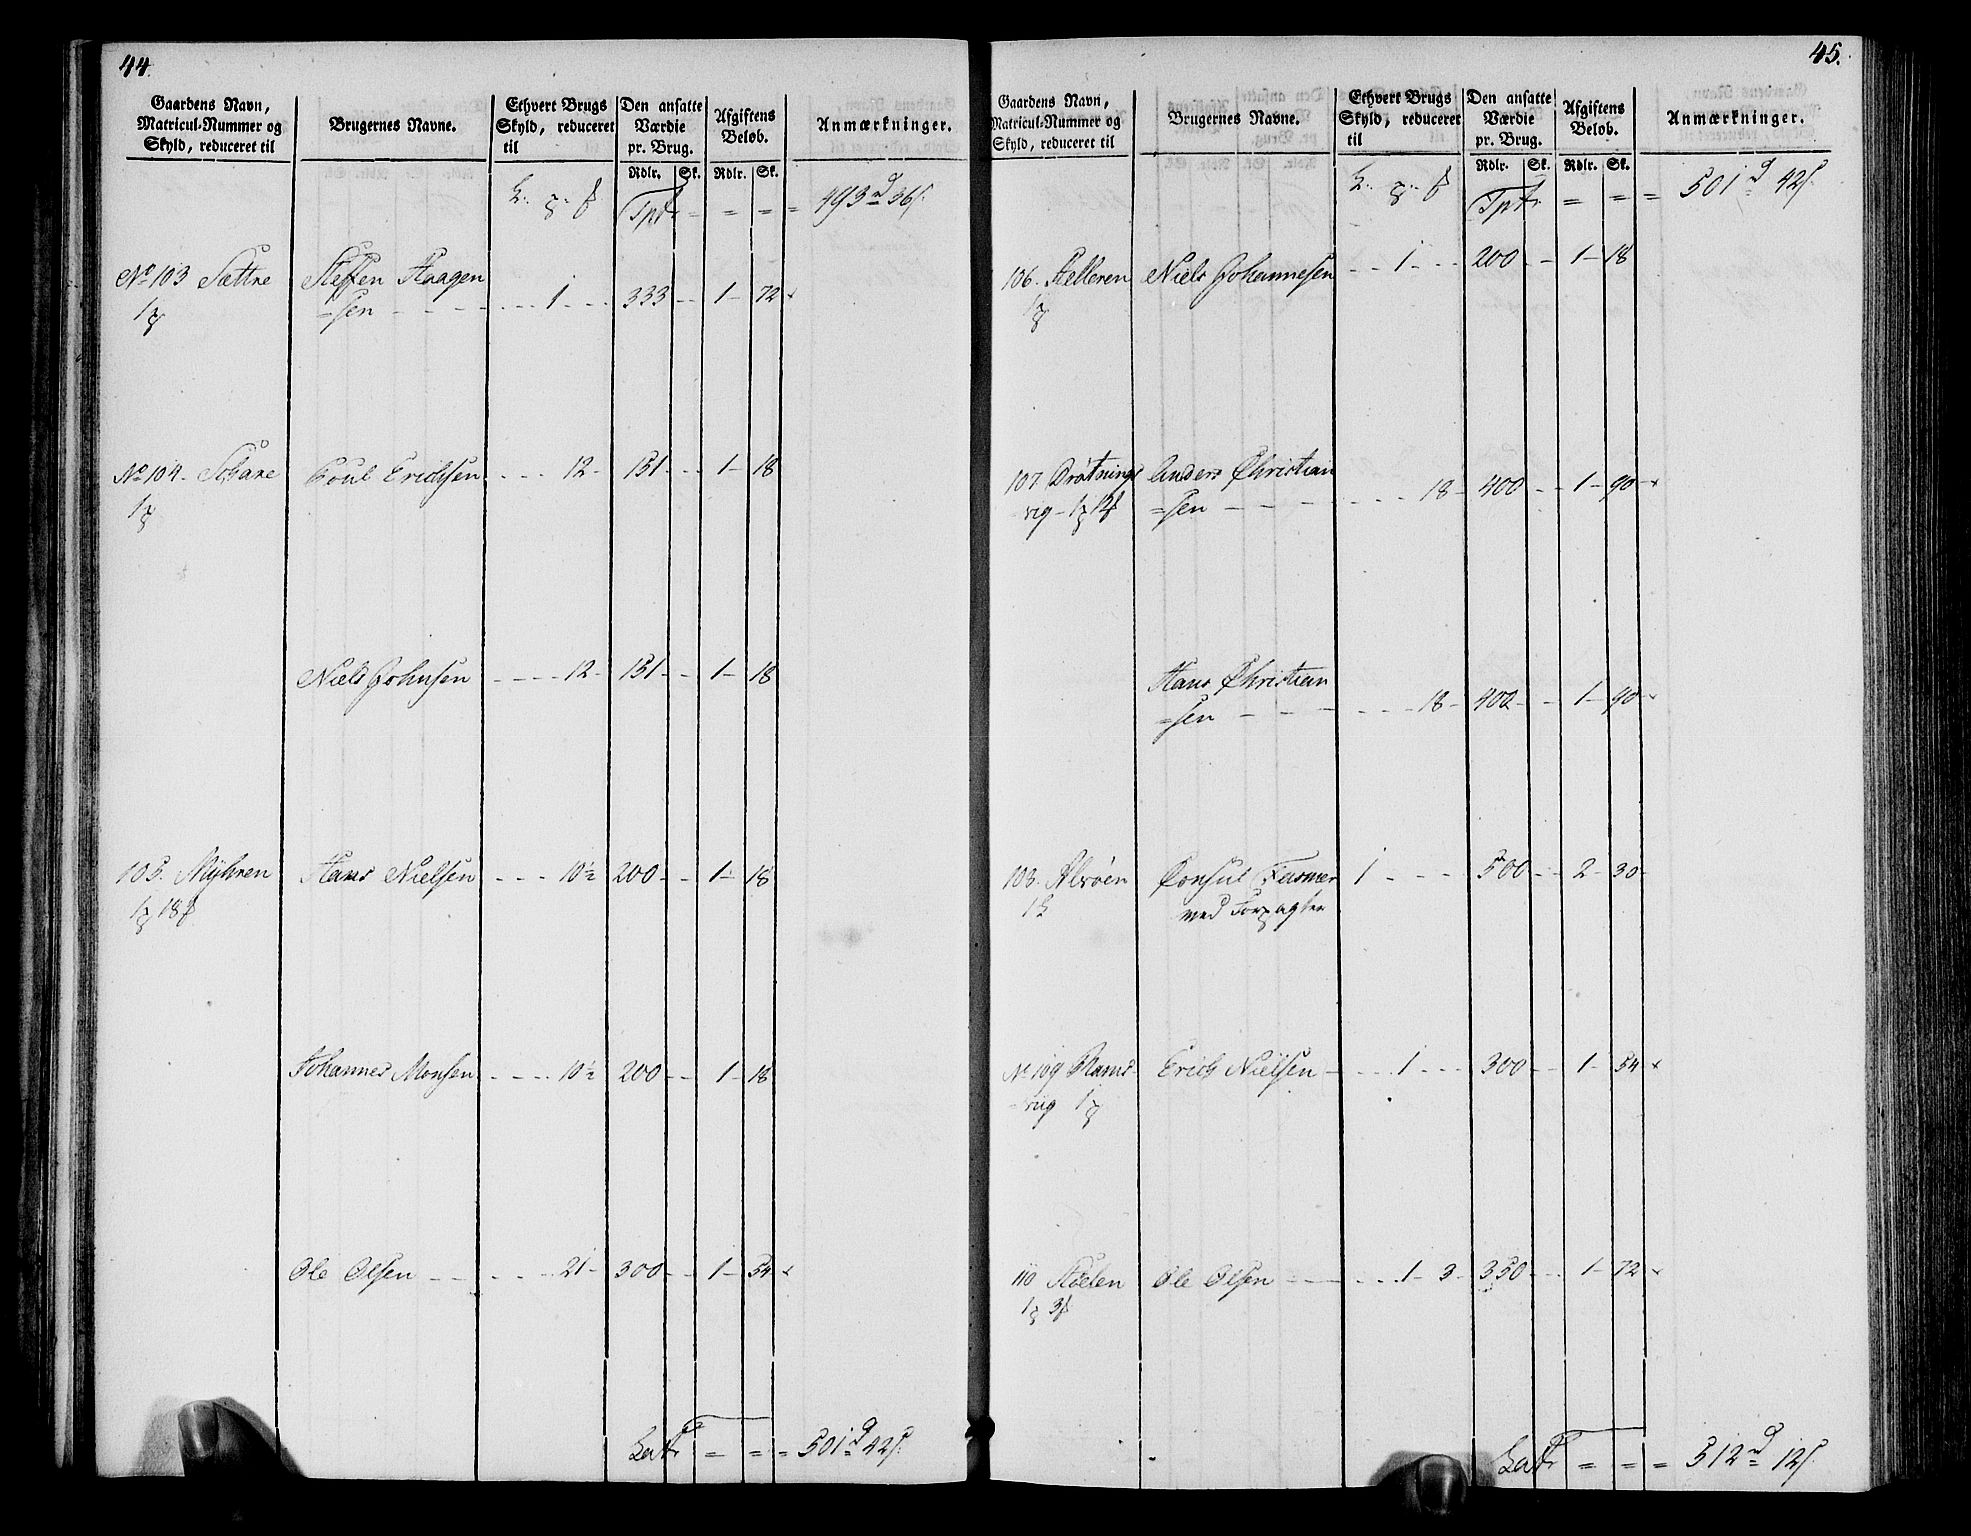 44.
Gaardens Navn, Matricul-Nummer og Skyld, reduceret til | Brugernes Navne. | Ethvert Brugs Skyld, reduceret til | Den ansatte Værdie pr. Brug. | Afgiftens Beløb. | Anmærkninger.
Rdlr. Sk. Rdlr. Sk.
Tptr = = = 493 36
No 103 Sættre Steffen Haagen
=sen - - - - 1 - - 333 - - 1 - 72
1
No 104. Poul Erichsen - - - 12 - 151 - - 1 - 18
1
Niels Johnsen - - - - 12 - 151 - - 1 - 18
105. Myhren Hans Nielsen - - - 10½ 200 - - 1 - 18
1 18
Johannes Monsen - - - - 10½ 200 - - 1 - 18
Ole Olsen - - - - - 21 - 300 - - 1 - 54
Latr = = = 501 42
45.
Gaardens Navn, Matricul-Nummer og Skyld, reduceret til | Brugernes Navne. | Ethvert Brugs Skyld, reduceret til | Den ansatte Værdie pr. Brug. | Afgiftens Beløb. | Anmærkninger.
Rdlr. Sk. Rdlr. Sk.
Tptr = = = 501 42
106. Helleren Niels Johannesen - - 1 - - - 200 - - 1 - 18
1
107 Drotnings Anders Christian
vig - 1 12 =sen - - - - - - 18 - 400 - - 1 - 90
Hans Christian
=sen - - - - - - 18 - 400 - - 1 - 90
108. Alvøen Consul Fasmer 1 - - - 500 - - 2 - 30
1 med Forpagter
No 109 Rams- Erich Nielsen - - - - 1 - - - 300 - - 1 - 54
vig 1
110 Ole Olsen - - - - - 1 - 3 - 350 - - 1 - 72
1 3
Latr = = = 512 12